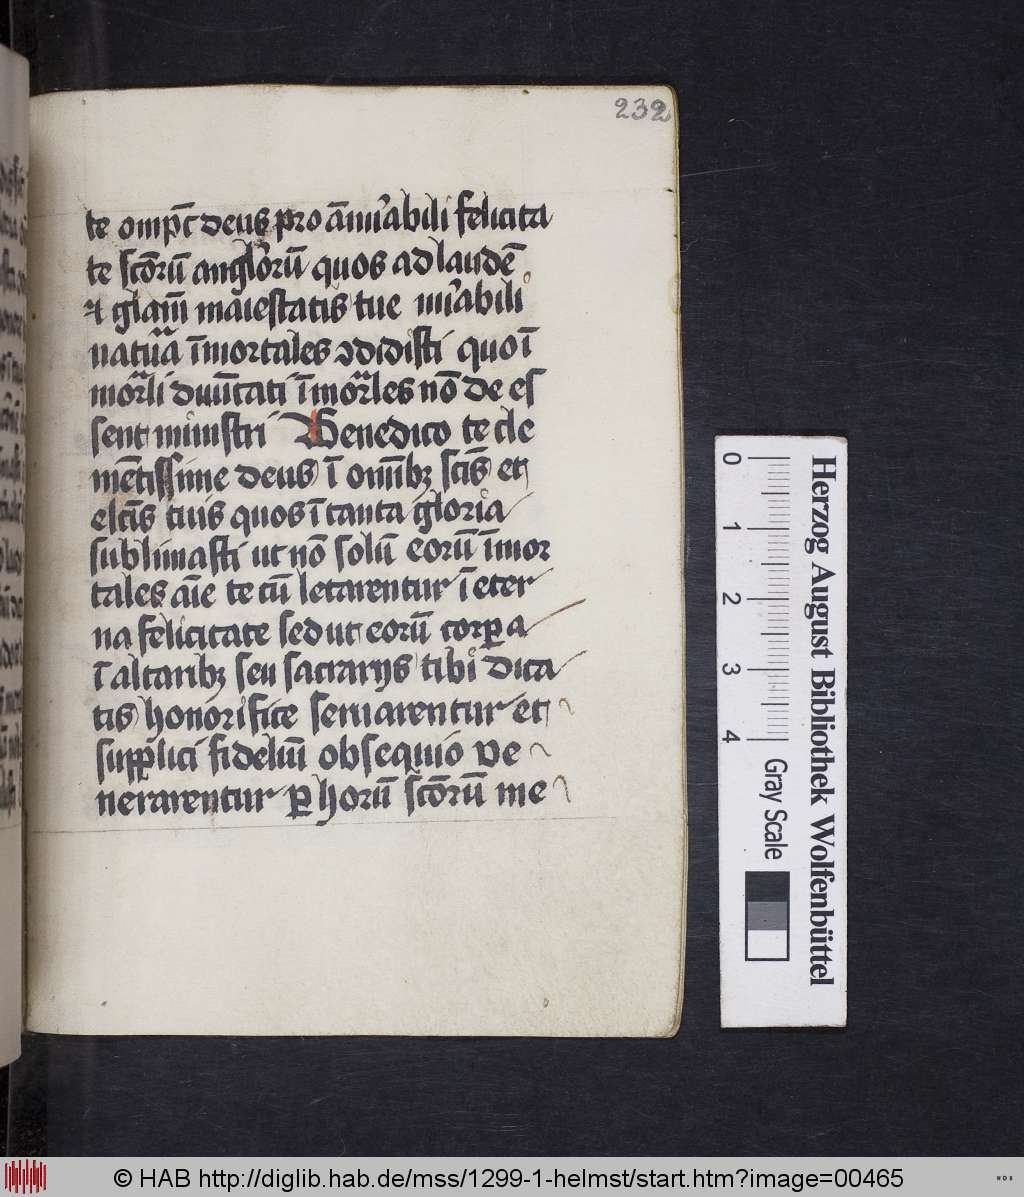 232
te omp̄c deus pro am̄irabili felicita
te sc̄orū anglorū quos ad laudē
et gl'am̄ maiestatis tue mirabili
natura īmortales ɔdidisti quo ī
mortali diuītati īmortales nō de es
sent ministri Benedico te cle
mētissime deus ī om̄ibꝫ sc̄is et
elc̄is tuis quos ī tanta gloria
sublimasti ut nō solū eorū īmor
tales aīe te cū letarentur ī eter
na felicitate sed ut eorū corꝑa
ī altaribꝫ seu sacrarijs tibi dica
tis honorifice seruarentur et
supplici fideliū obsequio ve
nerarentur ꝑ horū sc̄orū me
0 1 2 3 4
Gray Scale
Herzog August Bibliothek Wolfenbüttel
© HAB http://diglib.hab.de/mss/1299-1-helmst/start.htm?image=00465